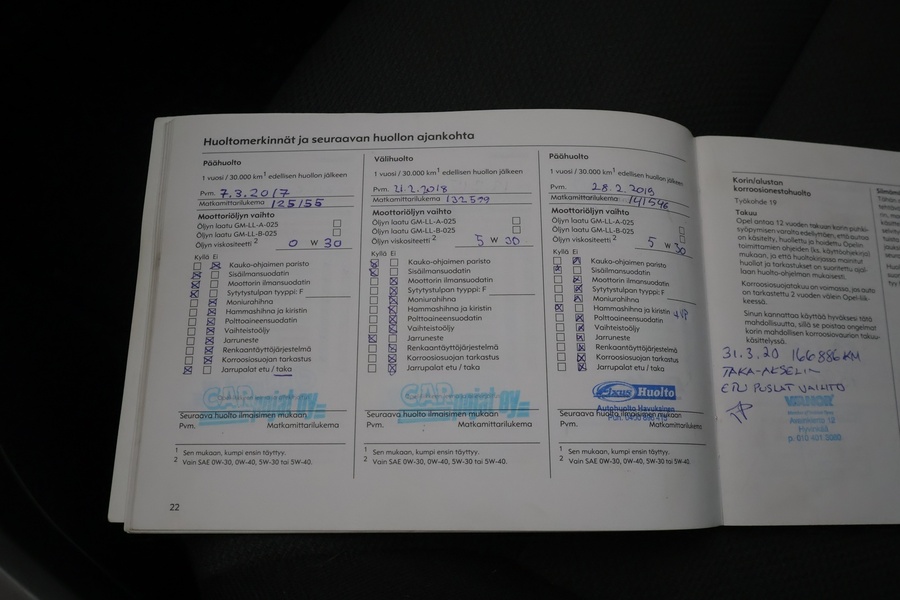 Huoltomerkinnät ja seuraavan huollon ajankohta
Päähuolto
1 vuosi / 30.000 km1 edellisen huollon jälkeen
Pvm. 7.3.2017
Matkamittarilukema 125155
Moottoriöljyn vaihto
Öljyn laatu GM-LL-A-025
Öljyn laatu GM-LL-B-025
Öljyn viskositeetti 2 0 W 30
Kyllä Ei
Kauko-ohjaimen paristo
Sisäilmansuodatin
Moottorin ilmansuodatin
Sytytystulpan tyyppi: F
Moniurahihna
Hammashihna ja kiristin
Polttoaineensuodatin
Vaihteistoöljy
Jarruneste
Renkaantäyttöjärjestelmä
Korroosiosuojan tarkastus
Jarrupalat etu / taka
Seuraava huolto ilmaisimen mukaan
Pvm. Matkamittarilukema
1 Sen mukaan, kumpi ensin täyttyy.
2 Vain SAE 0W-30, 0W-40, 5W-30 tai 5W-40.
22
Välihuolto
1 vuosi / 30.000 km1 edellisen huollon jälkeen
Pvm. 21.2.2018
Matkamittarilukema 132579
Moottoriöljyn vaihto
Öljyn laatu GM-LL-A-025
Öljyn laatu GM-LL-B-025
Öljyn viskositeetti 2 5 W 30
Kyllä Ei
Kauko-ohjaimen paristo
Sisäilmansuodatin
Moottorin ilmansuodatin
Sytytystulpan tyyppi: F
Moniurahihna
Hammashihna ja kiristin
Polttoaineensuodatin
Vaihteistoöljy
Jarruneste
Renkaantäyttöjärjestelmä
Korroosiosuojan tarkastus
Jarrupalat etu / taka
Seuraava huolto ilmaisimen mukaan
Pvm. Matkamittarilukema
1 Sen mukaan, kumpi ensin täyttyy.
2 Vain SAE 0W-30, 0W-40, 5W-30 tai 5W-40.
Päähuolto
1 vuosi / 30.000 km1 edellisen huollon jälkeen
Pvm. 28.2.2019
Matkamittarilukema 141546
Moottoriöljyn vaihto
Öljyn laatu GM-LL-A-025
Öljyn laatu GM-LL-B-025
Öljyn viskositeetti 2 5 W 30
Kyllä Ei
Kauko-ohjaimen paristo
Sisäilmansuodatin
Moottorin ilmansuodatin
Sytytystulpan tyyppi: F
Moniurahihna
Hammashihna ja kiristin
Polttoaineensuodatin
Vaihteistoöljy
Jarruneste
Renkaantäyttöjärjestelmä
Korroosiosuojan tarkastus
Jarrupalat etu / taka
Huolto
Autohuolto Havukainen
Seuraava huolto ilmaisimen mukaan
Pvm. Matkamittarilukema
1 Sen mukaan, kumpi ensin täyttyy.
2 Vain SAE 0W-30, 0W-40, 5W-30 tai 5W-40.
Korin/alustan
korroosionestohuolto
Työkohde 19
Takuu
Opel antaa 12 vuoden takuun korin puhki-
syöpymisen varalta edellyttäen, että autoa
on käsitelty, huollettu ja hoidettu Opelin
toimittamien ohjeiden (ks. käyttöohjekirja)
mukaan, ja että huoltokirjassa mainitut
huollot ja tarkastukset on suoritettu ajal-
laan huolto-ohjelman mukaisesti.
Korroosiosuojatakuu on voimassa, jos auto
on tarkastettu 2 vuoden välein Opel-liik-
keessä.
Sinun kannattaa käyttää hyväksesi tätä
mahdollisuutta, sillä se poistaa ongelmat
korin mahdollisen korroosiovaurion takuu-
käsittelyssä.
31.3.20 166886 KM
TAKA-AKSELIN
ETU PUSLAT VAIHTO
VIANOR
Hyvinkää
p. 010 401 3080